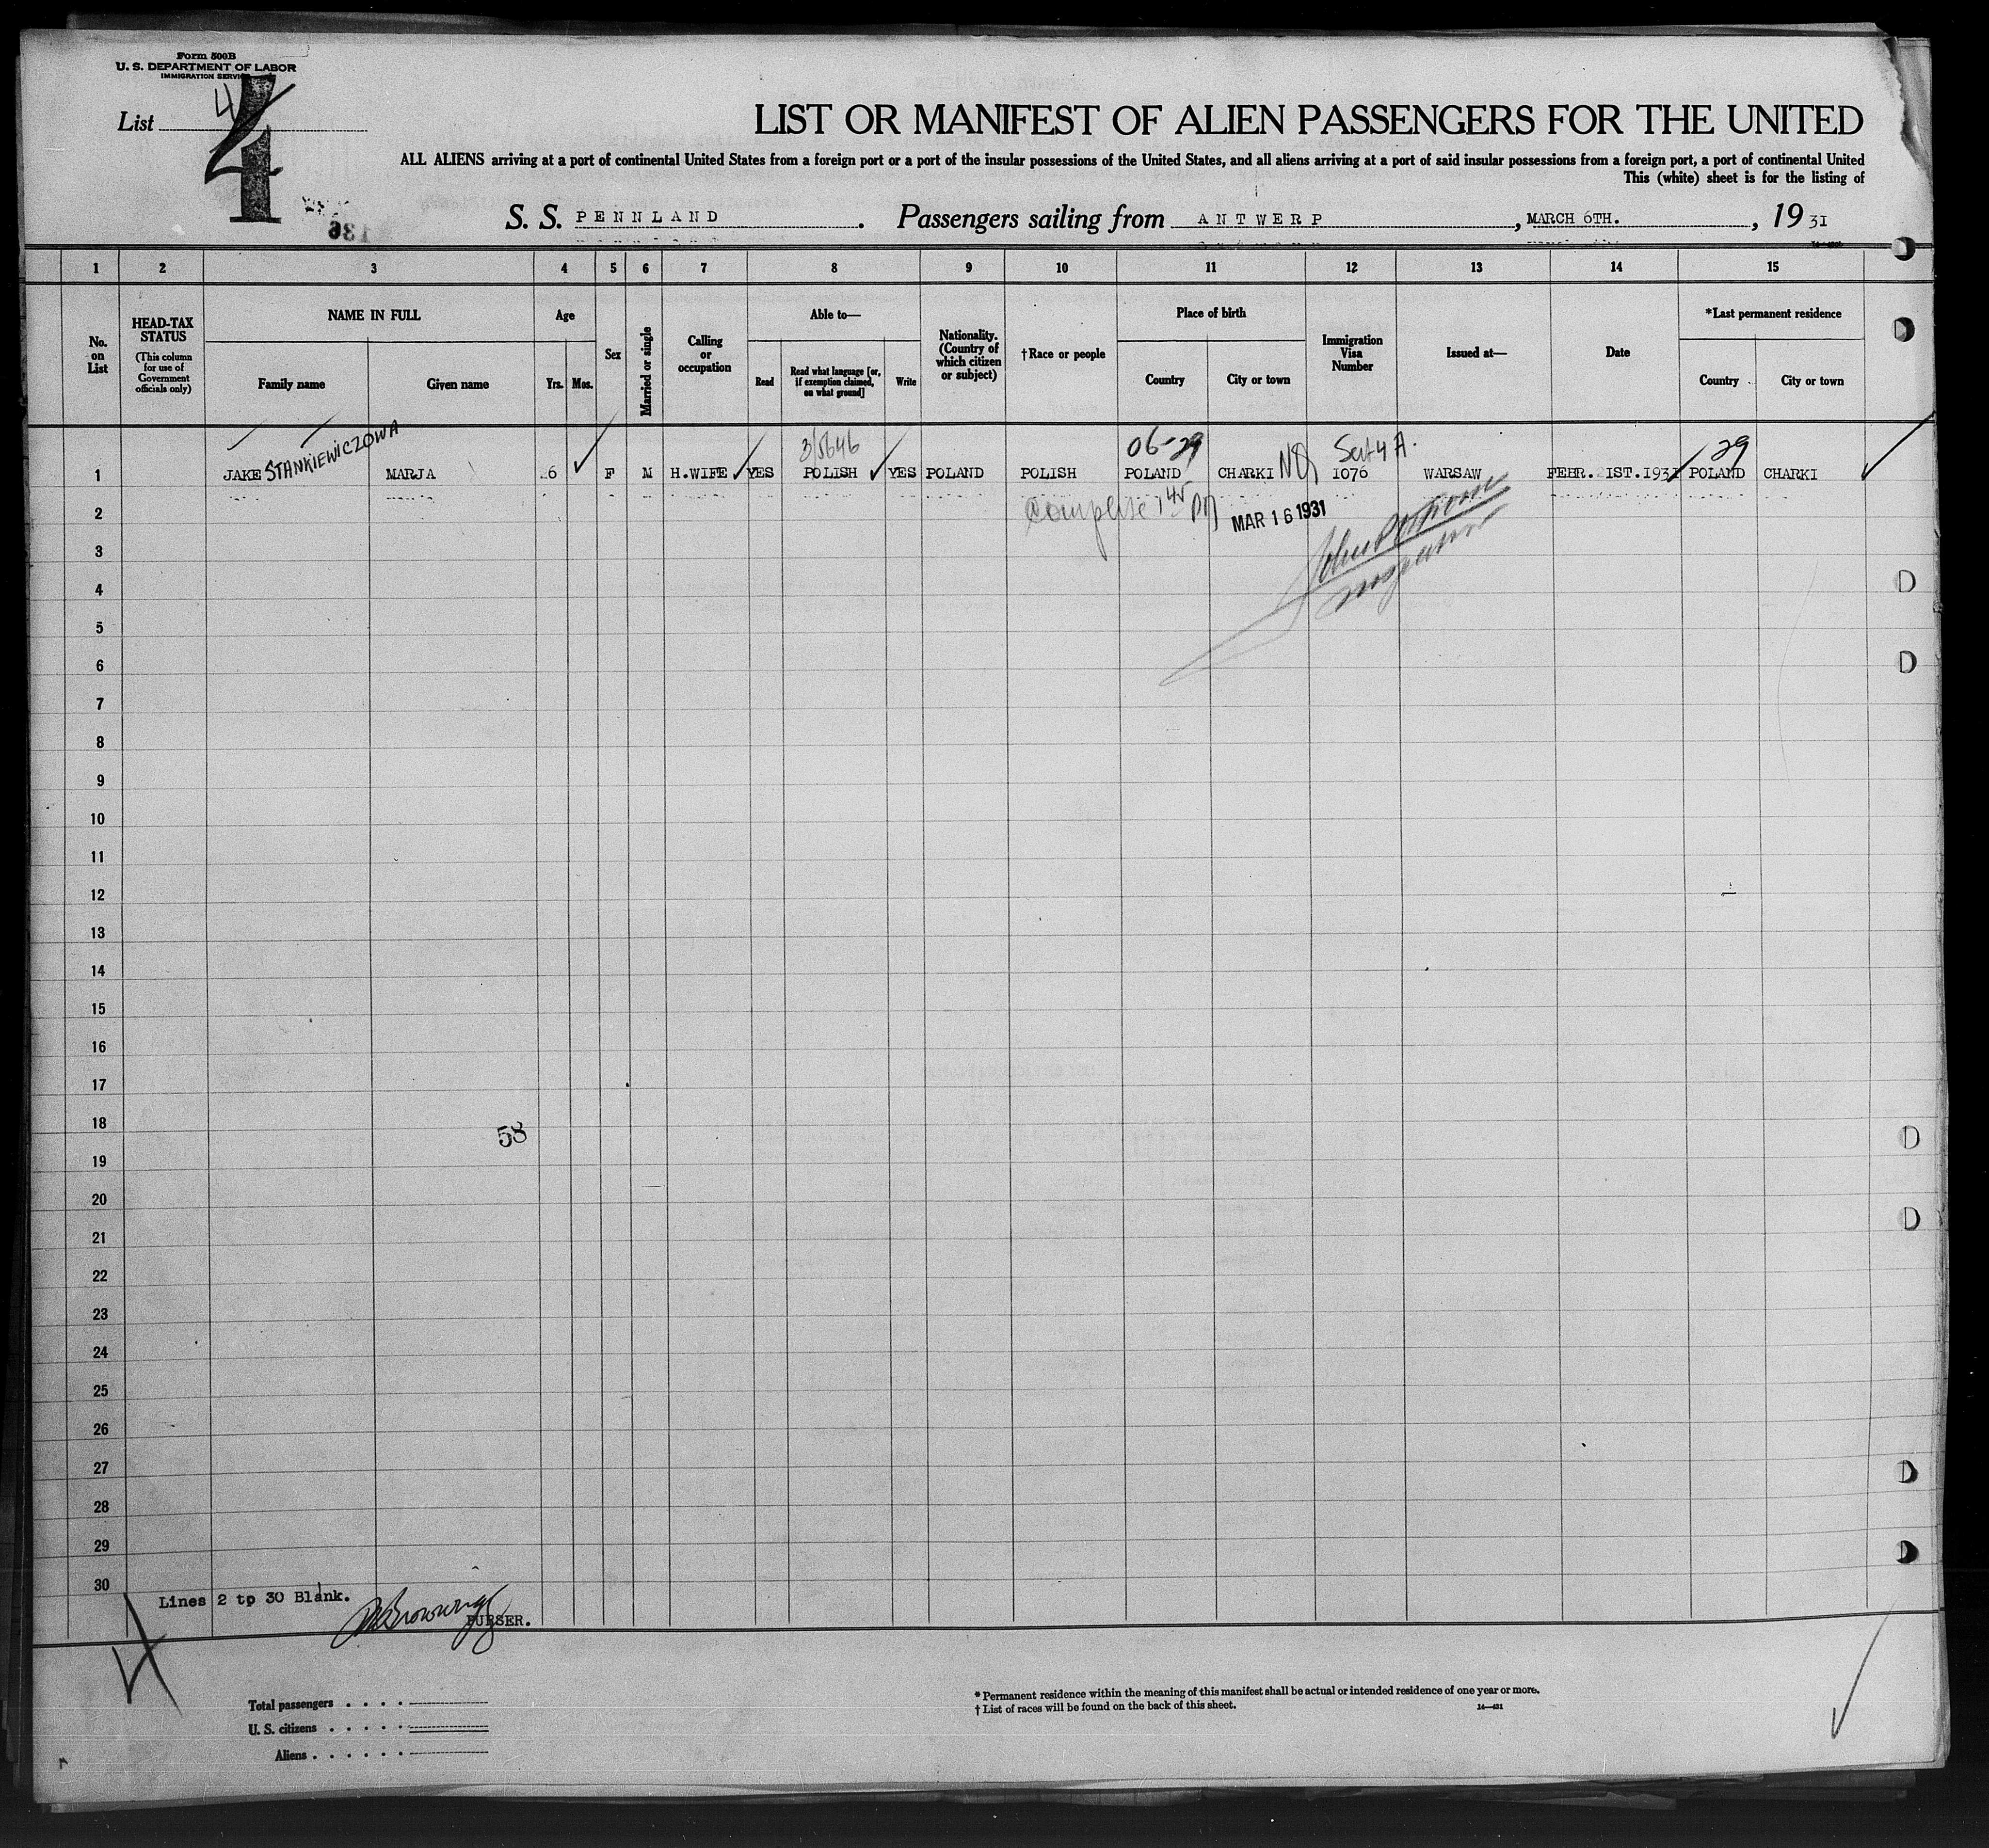 Form 500B
U. S. DEPARTMENT OF LABOR
IMMIGRATION SERVICE
List 4
4
136
LIST OR MANIFEST OF ALIEN PASSENGERS FOR THE UNITED
ALL ALIENS arriving at a port of continental United States from a foreign port or a port of the insular possessions of the United States, and all aliens arriving at a port of said insular possessions from a foreign port, a port of continental United
This (white) sheet is for the listing of
S. S. PENNLAND. Passengers sailing from ANTWERP, MARCH 6TH., 1931
1 2 3 4 5 6 7 8 9 10 11 12 13 14 15
No. on List
HEAD-TAX STATUS
(This column for use of Government officials only)
NAME IN FULL
Family name
Given name
Age
Yrs. Mos.
Sex
Married or single
Calling or occupation
Able to—
Read
Read what language [or, if exemption claimed, on what ground]
Write
Nationality. (Country of which citizen or subject)
†Race or people
Place of birth
Country
City or town
Immigration Visa Number
Issued at—
Date
*Last permanent residence
Country
City or town
STANKIEWICZOWA 3/5646 06-29 Sec 4 A. 29
1 JAKE MARJA 6 F M H.WIFE YES POLISH YES POLAND POLISH POLAND CHARKI 1076 WARSAW FEHR. 21ST.1931 POLAND CHARKI
2 MAR 16 1931
3
4
5
6
7
8
9
10
11
12
13
14
15
16
17
18
58
19
20
21
22
23
24
25
26
27
28
29
30
Lines 2 tp 30 Blank.
PURSER.
Total passengers
U. S. citizens
Aliens
* Permanent residence within the meaning of this manifest shall be actual or intended residence of one year or more.
† List of races will be found on the back of this sheet.
14—431